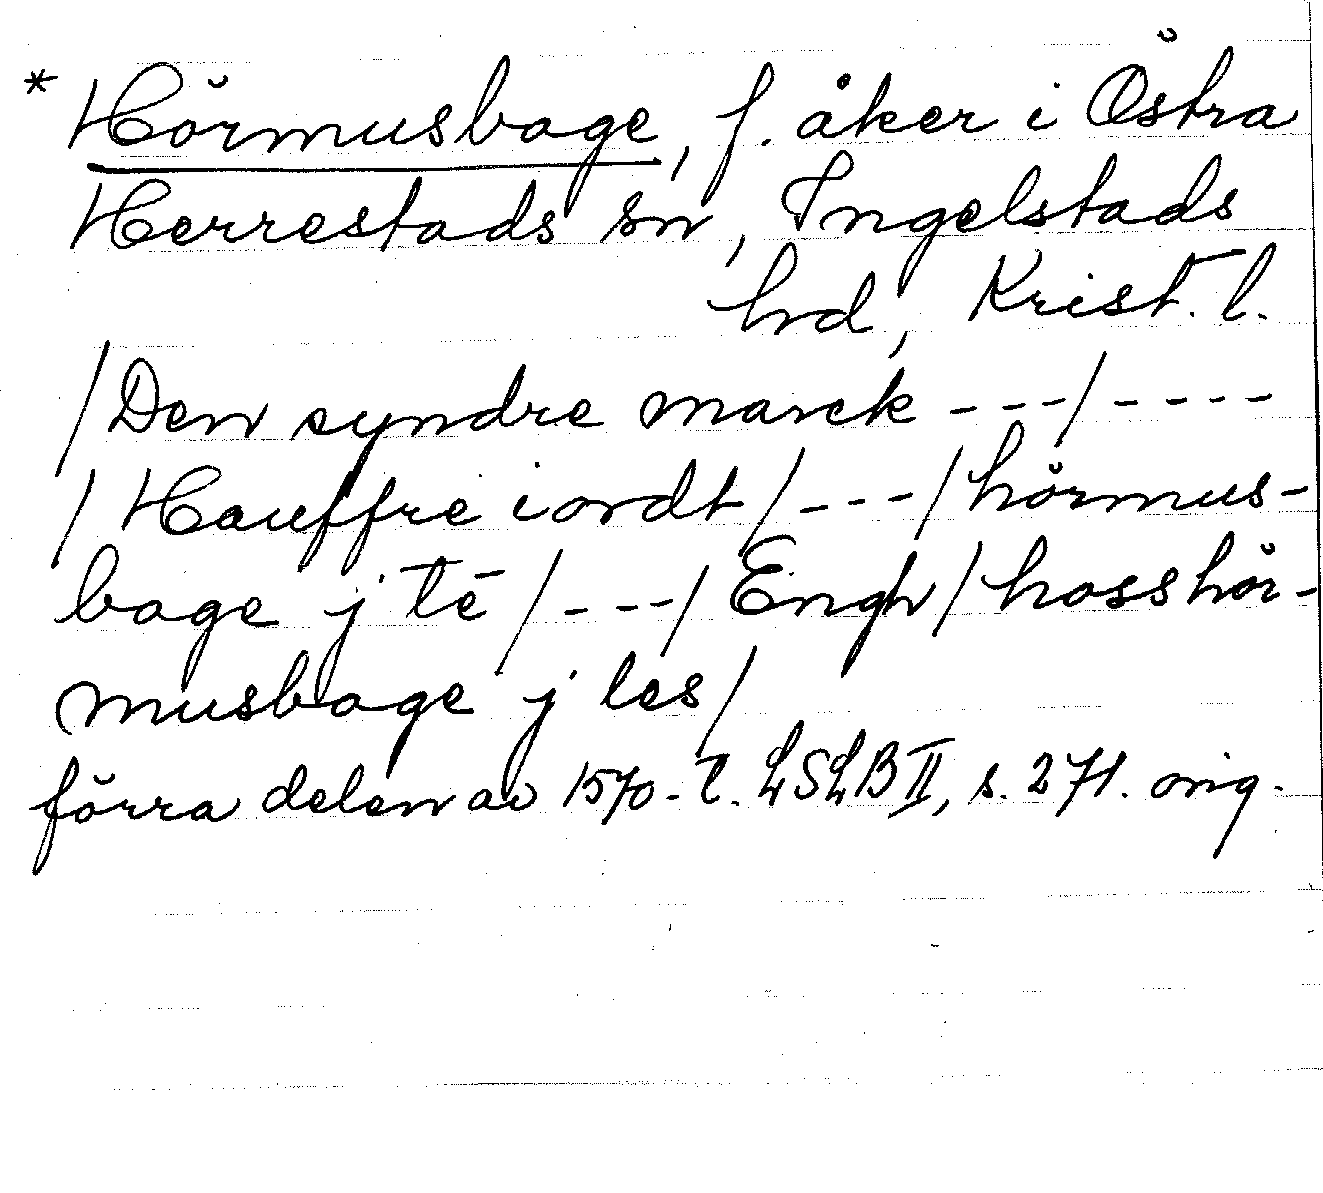 * Hörmusbage, f. åker i Östra
Herrestads sn, Ingelstads
hrd, Krist. l.
/Den syndre marck ---/----
/Hauffre iordt/---/hörmus-
bage j tē/---/Engh/hoss hör-
musbage j les/
förra delen av 1570-t. LSLB II, s. 271. orig.